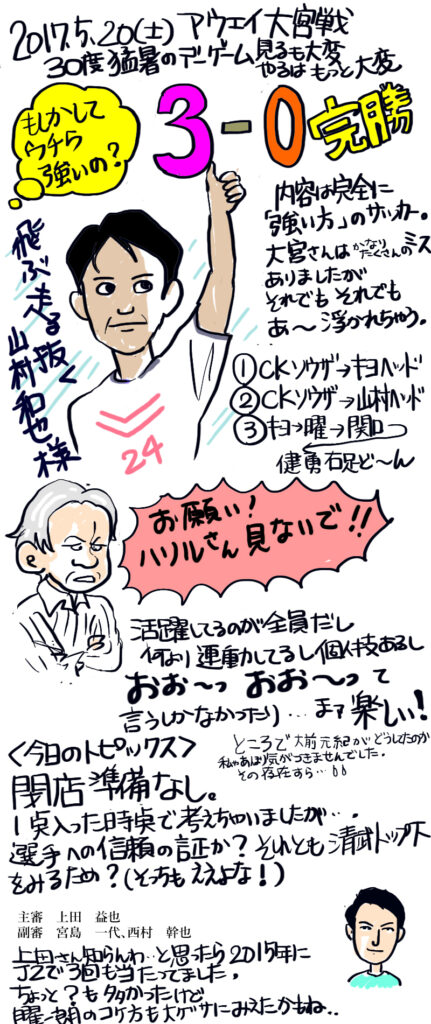 2017.5.20(土) アウェイ大宮戦
30度猛暑のデーゲーム 見るも大変
やるは もっと大変
もしかして
ウチら
強いの?
3-0 完勝
内容は完全に
「強い方」のサッカー。
大宮さんは かなり たくさんの ミス
ありましたが
それでも それでも
あ〜 浮かれちゃう。
飛ぶ 走る 抜く
山村和也 様
24
①CKソウザ→キヨヘッド
②CKソウザ→山村ヘッド
③キヨ→曜→関口
健勇右足ど〜ん
お願い!
ハリルさん 見ないで!!
活躍してるのが全員だし
何より 連動してるし 個人技あるし
おお〜っ おお〜っ て
言うしかなかったり… まァ 楽しい!
ところで 大前元紀がどうしてたのか
私ゃあまり気がつきませんでした。
その存在すら…
<今日のトピックス>
閉店準備なし。
1点入った時点で考えちゃいましたが…。
選手への信頼の証か? それとも 清武トップ下
をみるため?(そっちも ええよな!)
主審 上田 益也
副審 宮島 一代、西村 幹也
上田さん知らんわ…と思ったら 2015年に
J2で3回も当たってました。
ちょっと?も多かったけど
曜一朗のコケ方も大ゲサにみえたかもね..